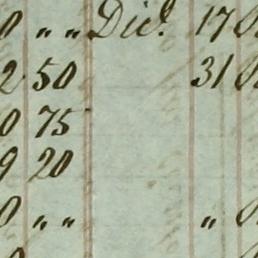 0 „ „ Dic.e 17
2 50 31
0 75
9 20
0 „ „ „